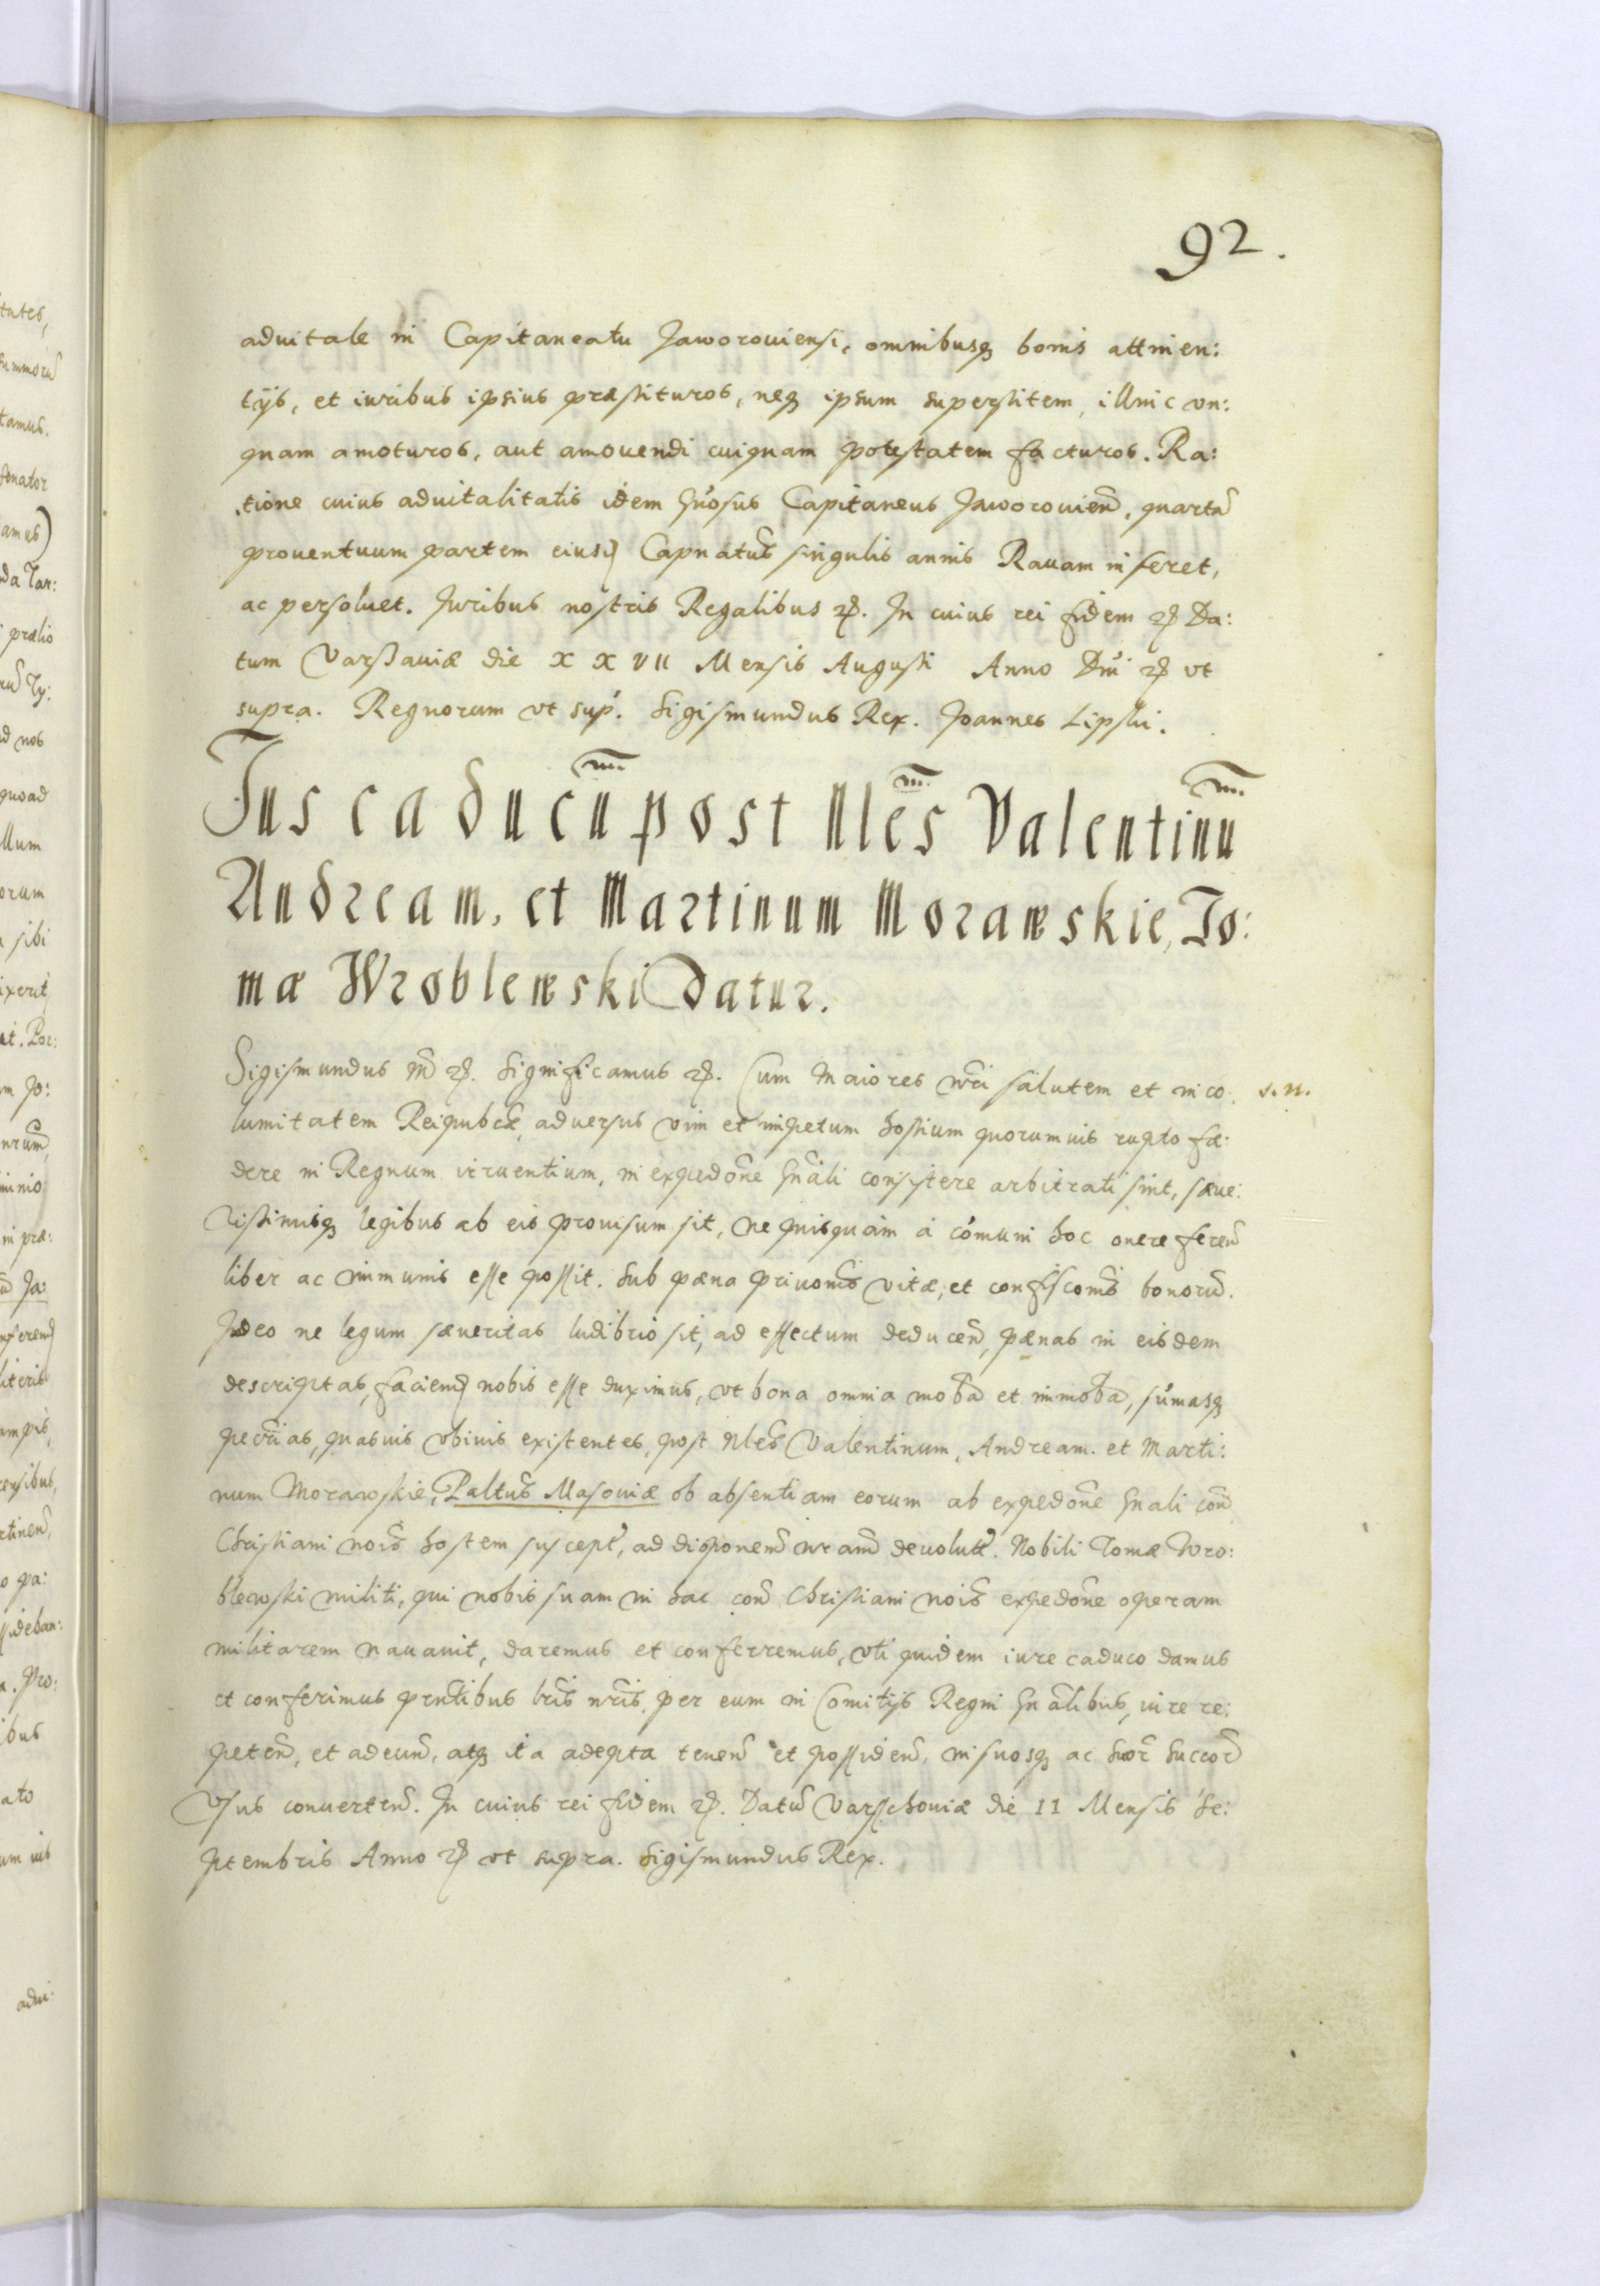 92.
advitale in Capitaneatu Jaworoviensi, omnibusq bonis attinen:
tijs, et iuribus ipsius præstituros, neq ipsum superstitem, illinc vn:
quam amoturos, aut amouendi cuiquam potestatem facturos. Ra:
tione cuius advitalitatis idem Gnosus Capitaneus Jaworovien, quartã
prouentuum partem eiusd Capnatus singulis annis Rauam inferet,
ac persoluet. Juribus nostris Regalibus etc. In cuius rei fidem etc Da:
tum Varssauiæ die XXVII Mensis Augusti Anno Dni etc vt
supra. Regnorum vt sup. Sigismundus Rex. Joannes Lipski.
Jus caducũ post Nles Valentinũ
Andream, et Martinum Morawskie, To:
mæ Wroblewski Datur.
Sigismundus etc. Significamus etc. Cum Maiores nri salutem et inco s.n.
lumitatem Reipubcæ, adversus vim et impetum hostium quorumuis rupto fæ:
dere in Regnum irruentium, in expedone Gnali consistere arbitrati sint, sæue:
rissimisq legibus ab eis prouisum sit, ne quisquam à comuni hoc onere feren
liber ac immunis esse possit. Sub pæna privonis vitæ, et confiscomis bonorũ.
Ideo ne legum sæueritas ludibrio sit, ad effectum deducen, pænas in eisdem
descriptas, faciend nobis esse duximus, vt bona omnia moba et immoba, sumasq
pecrias, quasuis vbiuis existentes, post Nles Valentinum, Andream. et Marti:
num Morawskie, Paltus Masouiæ ob absentiam eorum ab expedone Gnali con
Christiani nois hostem suscept, ad disponem nram deuolut. Nobili Tomæ Wro:
blewski militi, qui nobis suam in hac con Christiani nois expedone operam
militarem nauauit, daremus et conferremus, vti quidem iure caduco damus
et conferimus prntibus lris nris, per eum in Comitijs Regni Gnalibus, iure re:
peten, et adeun, atq ita adepta tenen et possiden, in suosq ac suor succor
vsus conuerten. In cuius rei fidem etc. Datũ Varsschouiæ die 11 Mensis Se:
ptembris Anno etc vt supra. Sigismundus Rex.